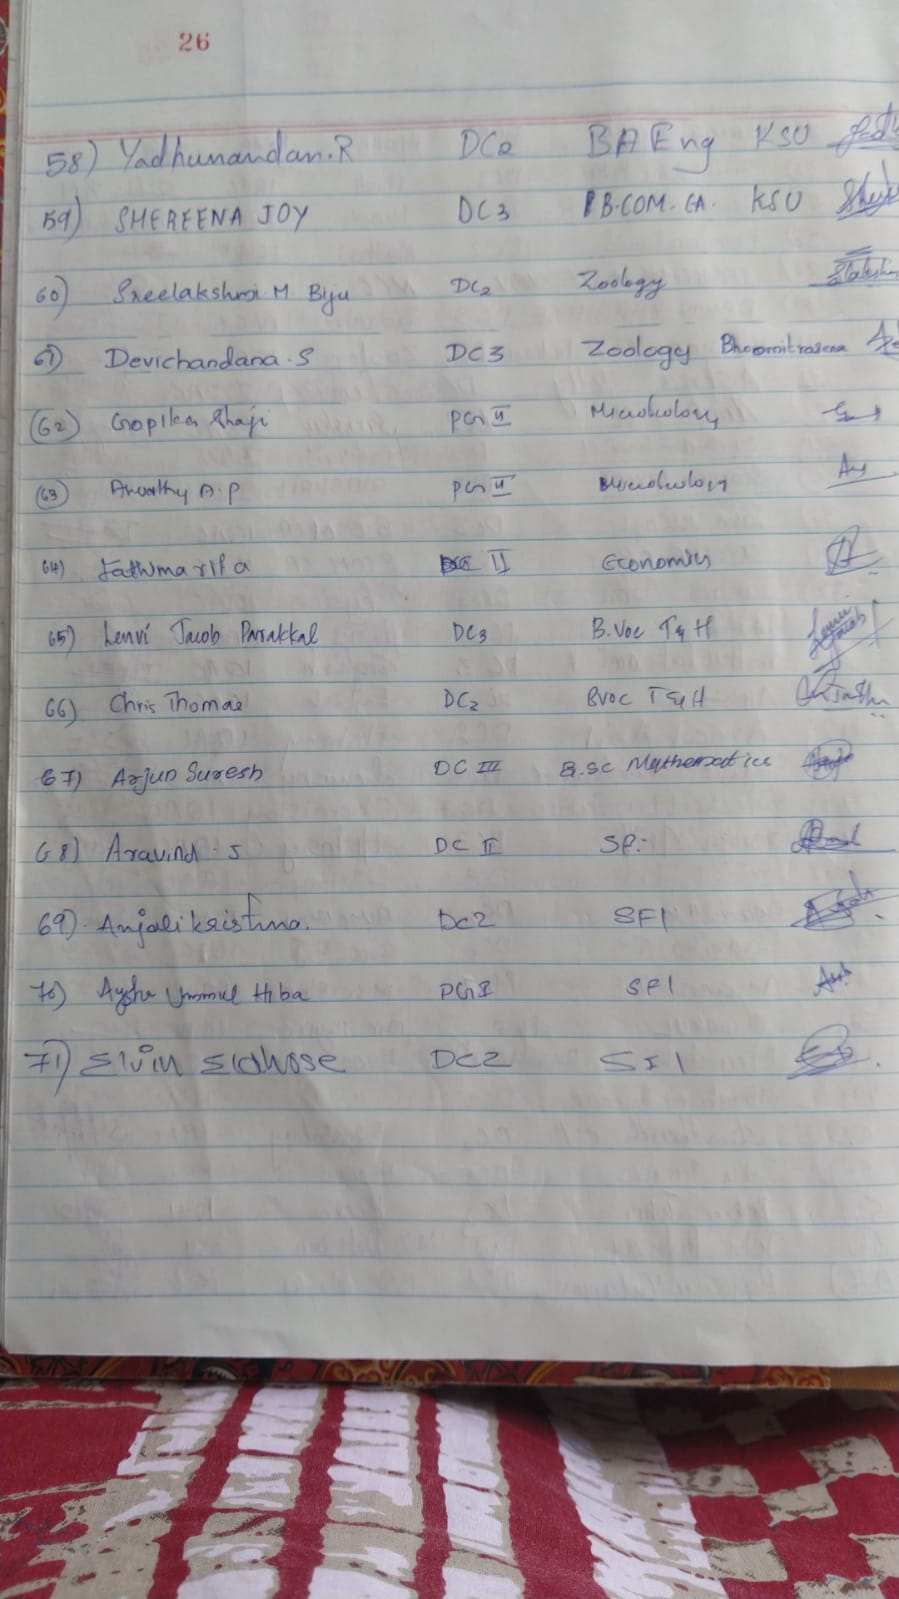 26
58) Yadhunandan.R DC2 BA Eng KSU
59) SHEREENA JOY DC3 B.COM. CA. KSU
60) Sreelakshmi M Biju DC2 Zoology
61) Devichandana.S DC3 Zoology Bhoomitrasena
62) Gopika Shaji PG II Microbiology
63) A.P PG II Microbiology
64) II Economics
65) Lenvi Jacob Parakkal DC3 B.Voc T&H
66) Chris Thomas DC2 BVOC T&H
67) Arjun Suresh DC III B.SC Mathematics
68) Aravind.S DC II
69) Anjali krishna. DC2 SFI
70) Ummul Hiba PG I SFI
71) Elvin Eldhose DC2 SFI